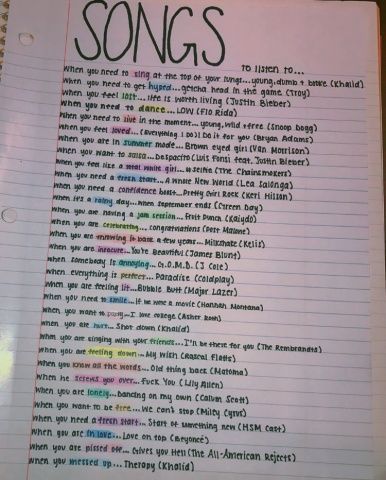 SONGS
to listen to...
when you need to sing at the top of your lungs...young, dumb + broke (Khalid)
when you need to get hyped...getcha head in the game (Troy)
when you feel lost...life is worth living (Justin Bieber)
when you need to dance...LOW (Flo Rida)
when you need to live in the moment...young, wild + free (Snoop Dogg)
when you feel loved...(Everything I do) I do it for you (Bryan Adams)
when you are in summer mode...Brown eyed girl (Van Morrison)
when you want to salsa...Despacito (Luis Fonsi feat. Justin Bieber)
when you feel like a total white girl...#selfie (The Chainsmokers)
when you need a fresh start...A Whole New World (Lea Salonga)
when you need a confidence boost...Pretty Girl Rock (Keri Hilson)
when it's a rainy day...when september ends (Green Day)
when you are having a jam session...Fruit Punch (Kaiydo)
when you are celebrating...congratulations (Post Malone)
when you are throwing it back a few years...Milkshake (Kelis)
when you are insecure...You're Beautiful (James Blunt)
when somebody is annoying...G.O.M.D. (J Cole)
when everything is perfect...Paradise (Coldplay)
when you are feeling lit...Bubble Butt (Major Lazer)
when you need to smile...If we were a movie (Hannah Montana)
when you want to party...I love college (Asher Roth)
when you are hurt...Shot down (Khalid)
when you are singing with your friends...I'll be there for you (The Rembrandts)
when you are feeling down...My wish (Rascal Flatts)
when you know all the words...Old thing back (Matoma)
when he screws you over...Fuck You (Lily Allen)
when you are lonely...Dancing on my own (Calum Scott)
when you want to be free...We can't stop (Miley Cyrus)
when you need a fresh start...Start of something new (HSM Cast)
when you are in love...Love on top (Beyoncé)
when you are pissed off...Gives You Hell (The All-American Rejects)
when you messed up...Therapy (Khalid)